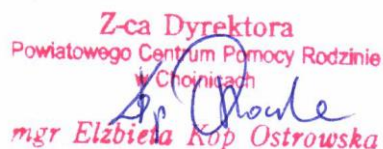 Z-ca Dyrektora
Powiatowego Centrum Pomocy Rodzinie
w Chojnicach
mgr Elżbieta Kop Ostrowska